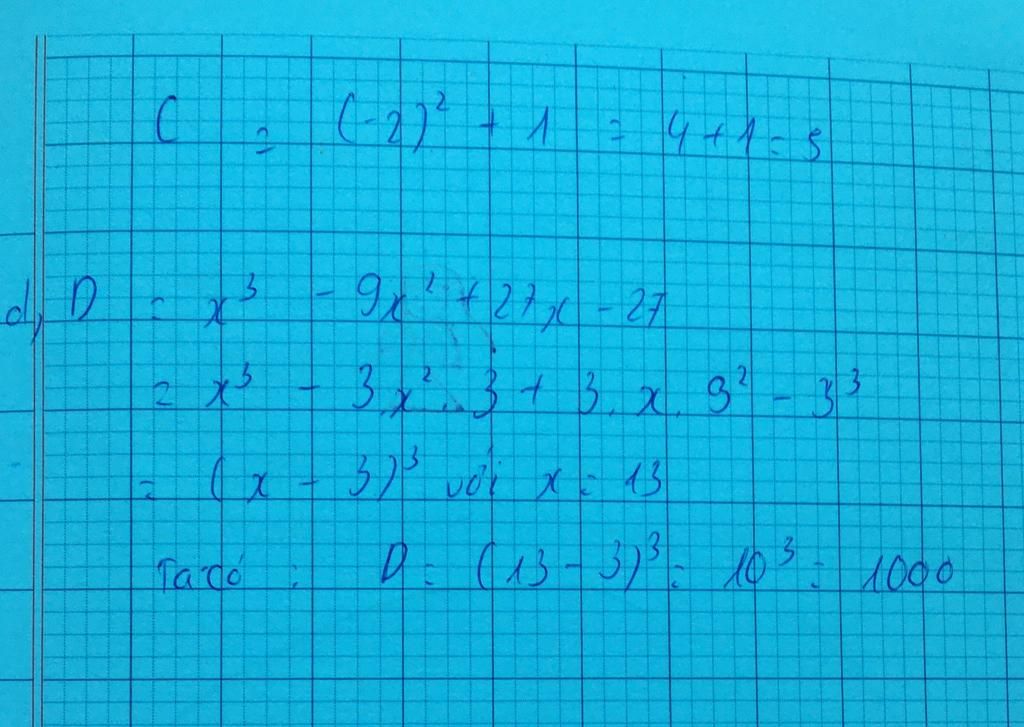 C = (-2)² + 1 = 4 + 1 = 5
d, D = x³ - 9x² + 27x - 27
= x³ - 3.x².3 + 3.x.9² - 3³
= (x - 3)³ với x = 13
Ta có : D = (13 - 3)³ = 10³ = 1000